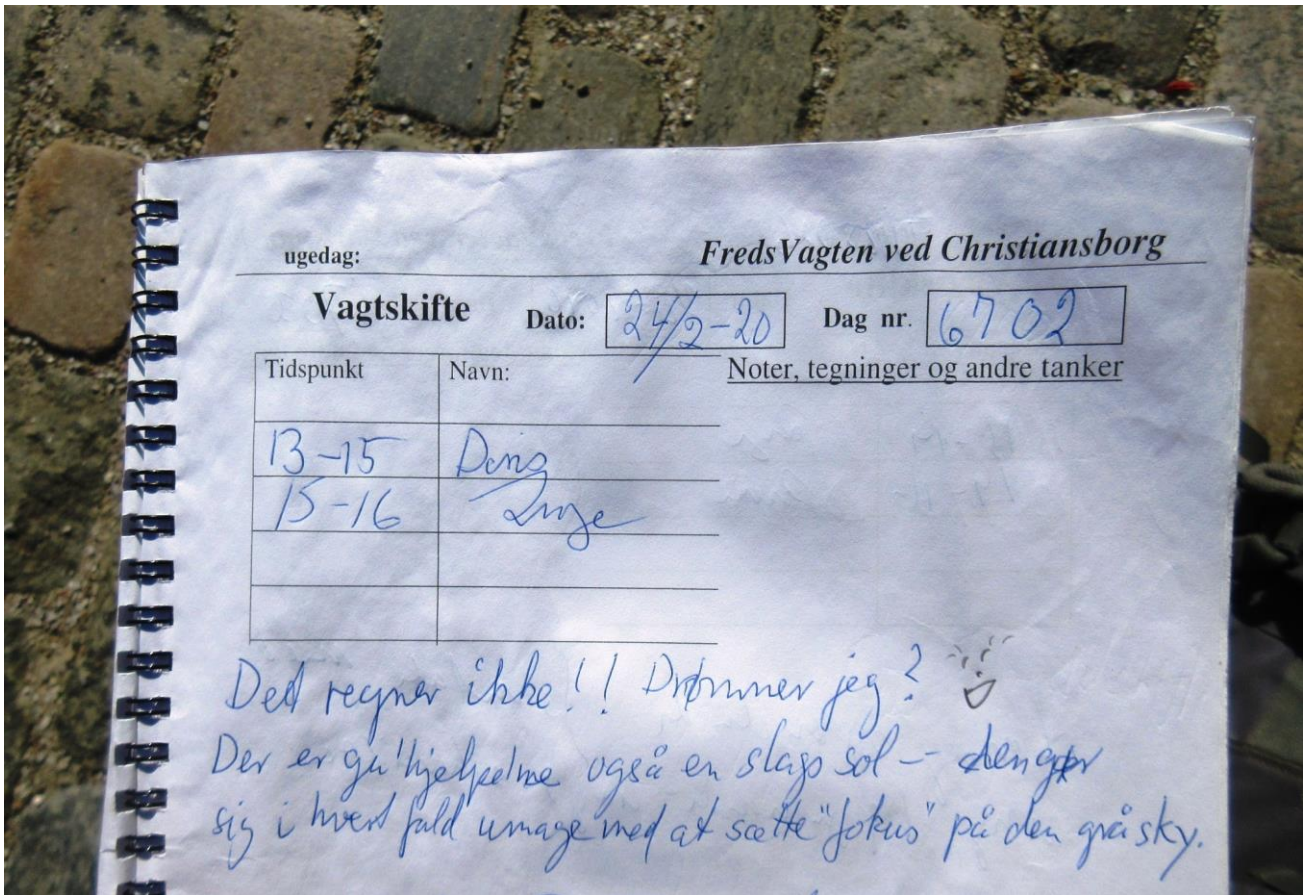 ugedag: FredsVagten ved Christiansborg
Vagtskifte Dato: 24/2-20 Dag nr. 6702
Tidspunkt Navn: Noter, tegninger og andre tanker
13-15
15-16 Inge
Det regner ikke!! Drømmer jeg?
Der er gu'hjelpeme også en slags sol - den gør
sig i hvert fald umage med at sætte "fokus" på den grå sky.